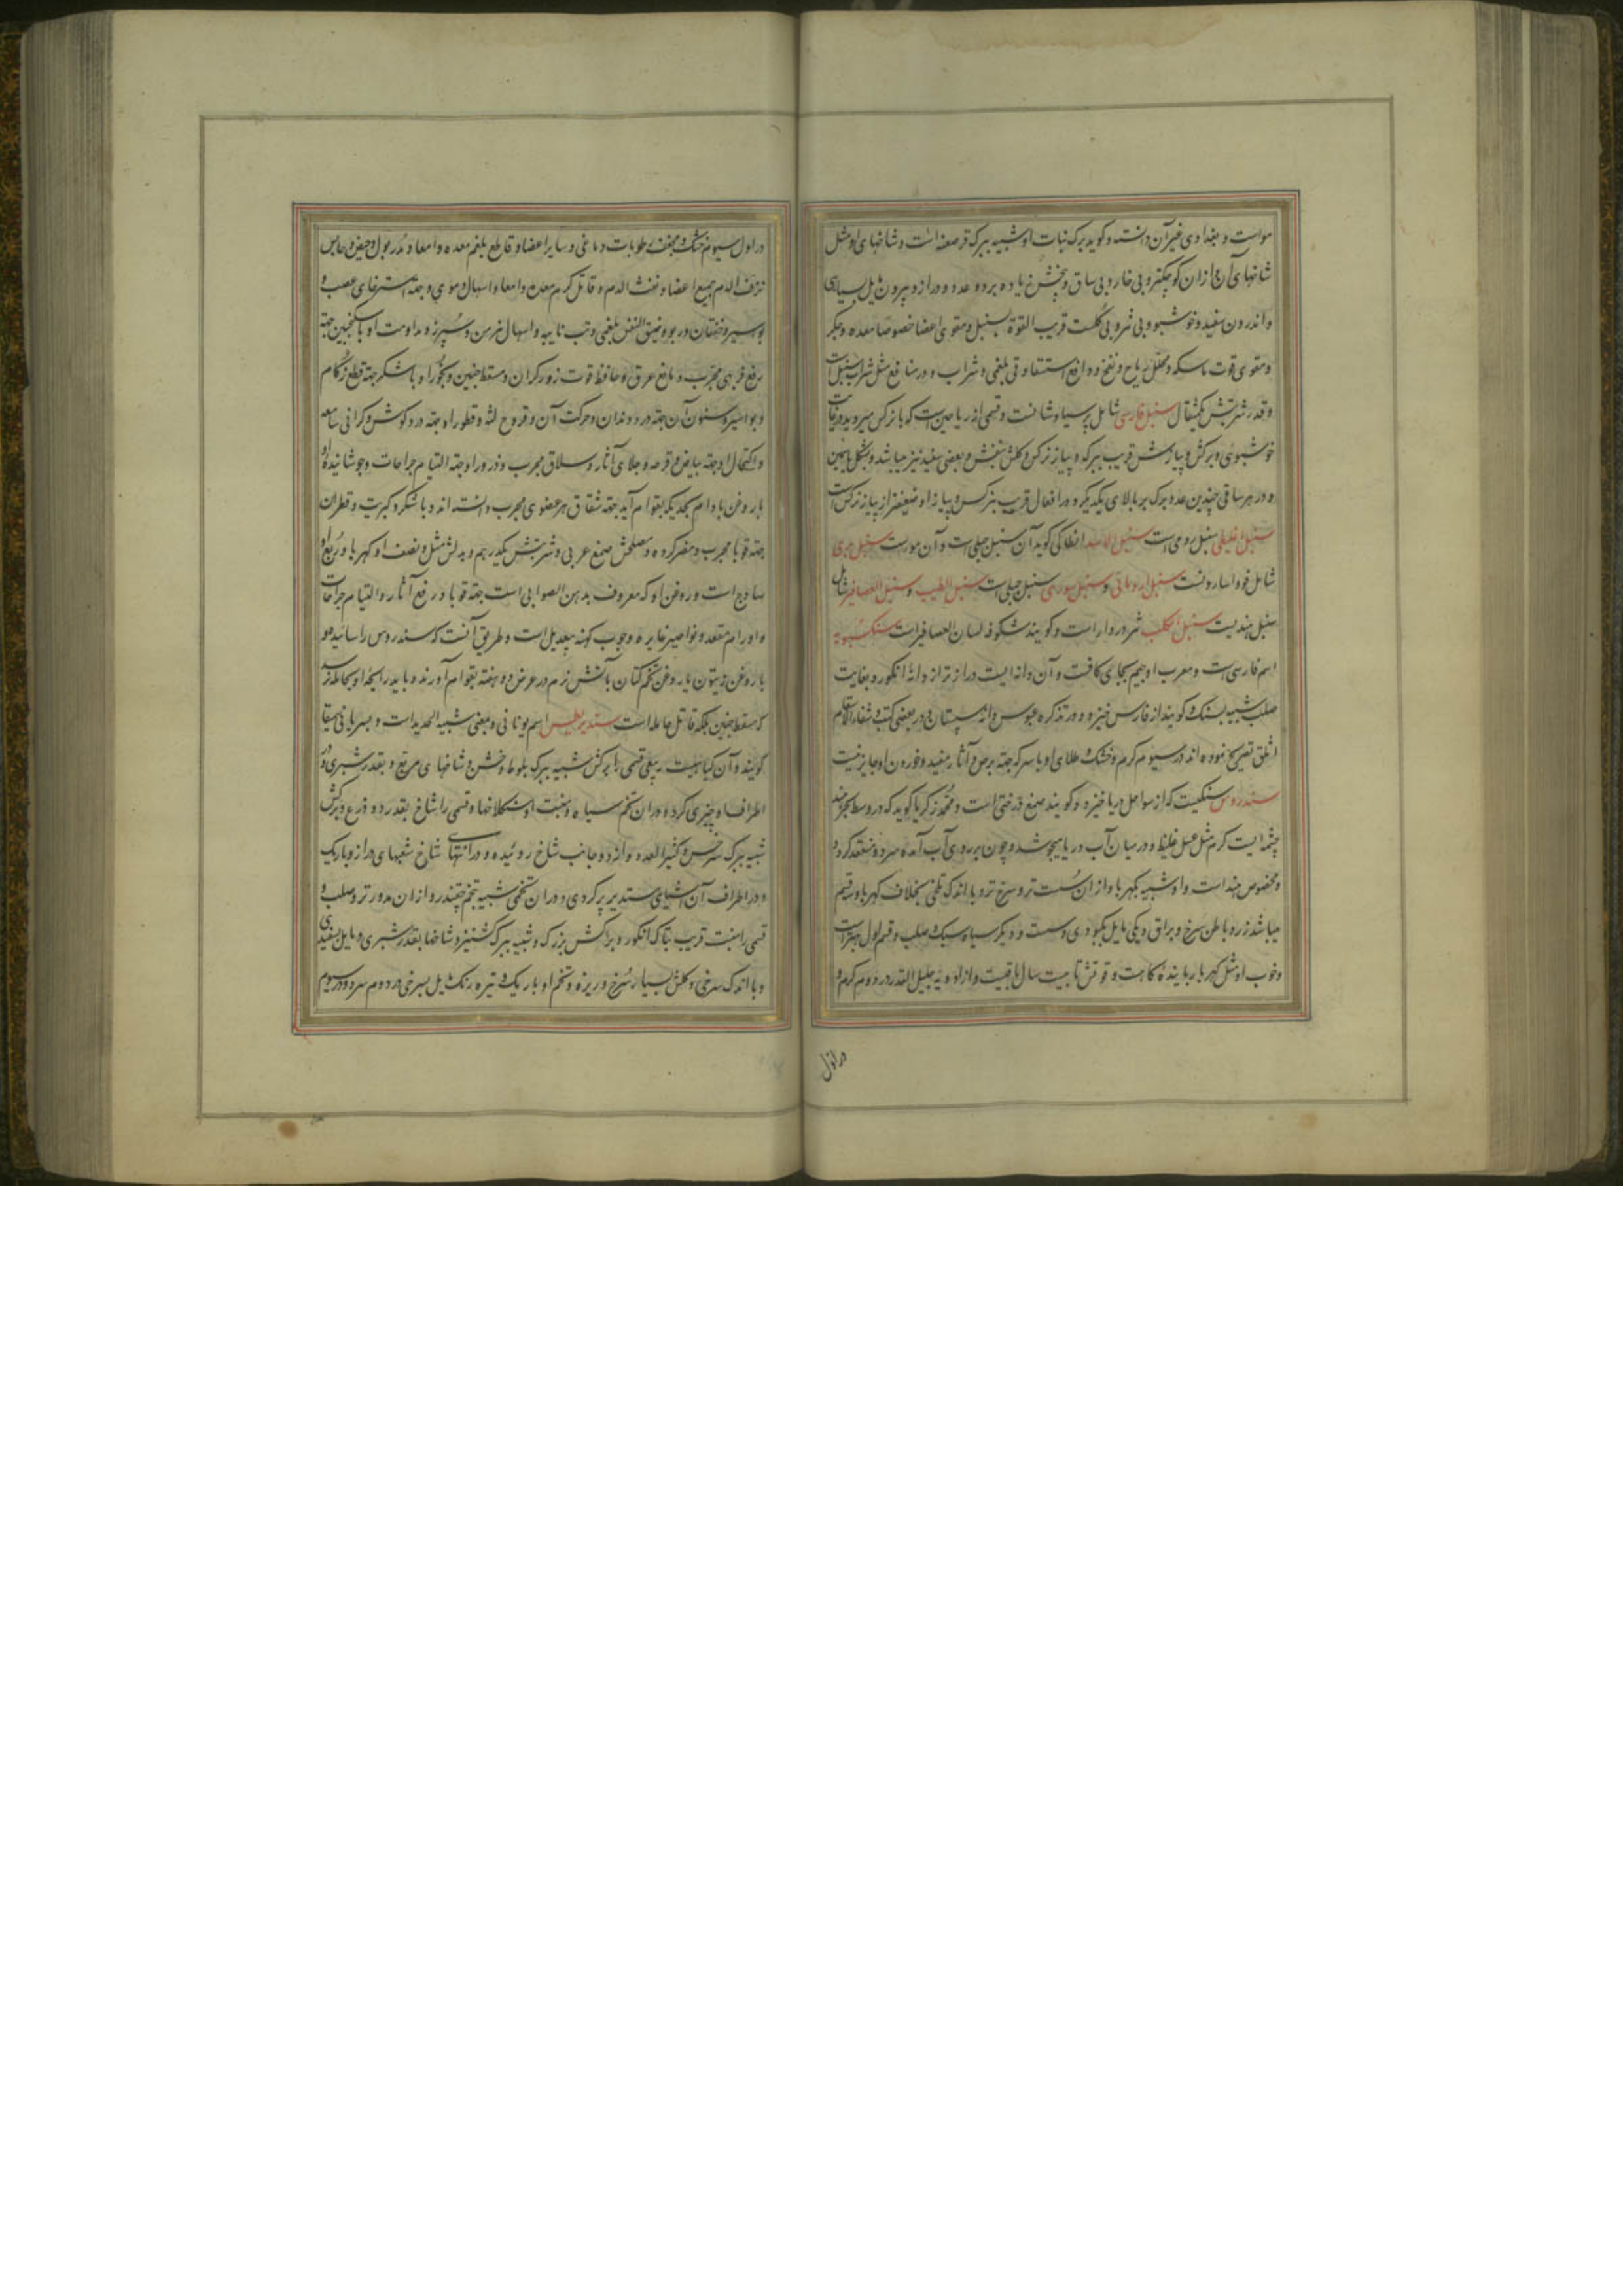 مو است و بغدادی غیر آن دانسته و گوید برک نبات او شبیه ببرک قرصعنه است و شاخهای او مثل
شاخهای آن و ازان کوچکتر و بی خار و بی ساق و بیخش زیاده بر دو عدد و دراز و بیرون مایل بسیاهی
و اندرون سفید و خوشبو و بی ثمر و بی کلست قریب القوة بسنبل و مقوی اعضا خصوصا معده و جکر
و مقوی قوت ماسکه و محلل ریاح و نفخ و دافع استسقا و قی بلغمی و شراب او در منافع مثل شراب سنبل است
و قدر شربتش یکمثقال سنبل فارسی شامل پرسیاوشانست و قسمی از ریاحین است که با نرکس میروید در غایت
خوشبوئی و برکش و پیازش قریب ببرک و پیاز نرکس و کلش بنفش و بعضی سفید نیز میباشد و بشکل یاسمین
و در هر ساقی چندین عدد برک بر بالای یکدیکر و در افعال قریب بنرکس و پیاز او ضعیفتر از پیاز نرکس است
سنبل اقلیطی سنبل رومی است سنبل الاسد انطاکی کوید آن سنبل جبلی است و آن مو است سنبل بری
شامل فو و اسارونست سنبل رومانی و سنبل سوری سنبل جبلی است سنبل الطیب و سنبل العصافیر شامل
سنبل هندیست سنبل الکلب ثمر دردار است و کویند شکوفه لسان العصافیر است سنکسبویه
اسم فارسی است و معرب او بجیم بجای کافست و آن دانه ایست دراز تر از دانه انکور و بغایت
صلب شبیه بسنک و کویند از فارس خیزد و در تذکره عبوس دانه سپستان و در بعضی کتب و شفاء الاسقام
اثلق تصریح نموده اند در سیوم کرم و خشک و طلای او با سرکه جهة برص و آثار مفید و خوردن او جایز نیست
سندروس سنکیست که از سواحل دریا خیزد و کویند صمغ درختی است و محمد زکریا کوید که در وسط بحر هند
چشمه ایست کرم مثل عسل غلیظ و در میان آب دریا میجوشد و چون بر روی آب آمده سرد و منعقد کردد
و مخصوص هند است و او شبیه بکهربا و ازان سست تر و سرخ تر و با اندک تلخی بخلاف کهربا و سه قسم
میباشد زرد باطن سرخ و براق و یکی مایل بکبودی و سست و دیکر سیاه سبک و صلب و قسم اول بهتر است
و خوب او مثل کهربا رباینده کاهست و قوتش تا بیست سال باقیست و از ادویه جلیل القدر در دوم کرم و
در اول
در اول سیوم خشک و مجفف رطوبات دماغی و سایر اعضا و قاطع بلغم معده و امعا و مدر بول و حیض و حابس
نزف الدم جمیع اعضا و نفث الدم و قاتل کرم معده و امعا و اسهال دموی و جهة استرخای عصب و
بواسیر و خفقان و ربو و ضیق النفس بلغمی و تب نایبه و اسهال مزمن و سپرز و مداومت او با سکنجبین جهة
رفع فربهی مجرب و مانع عرق و حافظ قوت زورکران و مسقط جنین و بخور او با شکر جهة قطع زکام
و بواسیر و سنون آن جهة درد دندان و حرکت آن و قروح لثه و قطور او جهة درد کوش و کرانی سامعه
و اکتحال او جهة بیاض و قرحه و جلای آثار و سلاق مجرب و ذرور او جهة التیام جراحات و جوشانیده او
با روغن بادام بحدیکه بقوام آید جهة شقاق هر عضوی مجرب دانسته اند و با شکر و کبریت و قطران
جهة قوبا مجرب و مضر کرده و مصلحش صمغ عربی و شربتش یکدرهم و بدلش مثل و نصف او کهربا و ربع او
ساذج است و روغن او که معروف بدهن الصوابی است جهة قوبا و رفع آثار و التیام جراحات
و اورام مقعد و نواصیر غایره و جرب کهنه بیعدیل است و طریق آنست که سندروس را سائیده
با روغن زیتون یا روغن تخم کتان بآتش نرم در عرض دو هفته بقوام آورند و باید رایحه او بحامله نرسد
که مسقط جنین بلکه قاتل حامله است سندیریطیس اسم یونانی و بمعنی شبیه الحدید است و بسریانی
کویند و آن کیاهیست ربیعی قسمی را برکش شبیه ببرک بلوط و خشن و شاخهای مربع و بقدر شبری و در
اطراف او چیزی کرد و دران تخم سیاه و منبت او سنکلاخها و قسمی را شاخ بقدر دو ذرع و برکش
شبیه ببرک سرخس و کثیر العدد و از دو جانب شاخ روئیده و در انتهای شاخ شعبهای دراز و باریک
و در اطراف آن اشیای مستدیر پر کردی و دران تخمی شبیه بتخم چقندر و ازان مدور تر و صلب و
قسمی را منبت قریب بتاک انکور و برکش بزرک و شبیه ببرک کشنیز و شاخها بقدر شبری و مایل بسفیدی
و با اندک سرخی و کلش بسیار سرخ و ریزه و تخم او باریک و تیره رنک مایل بسرخی در دوم سرد و در سیوم